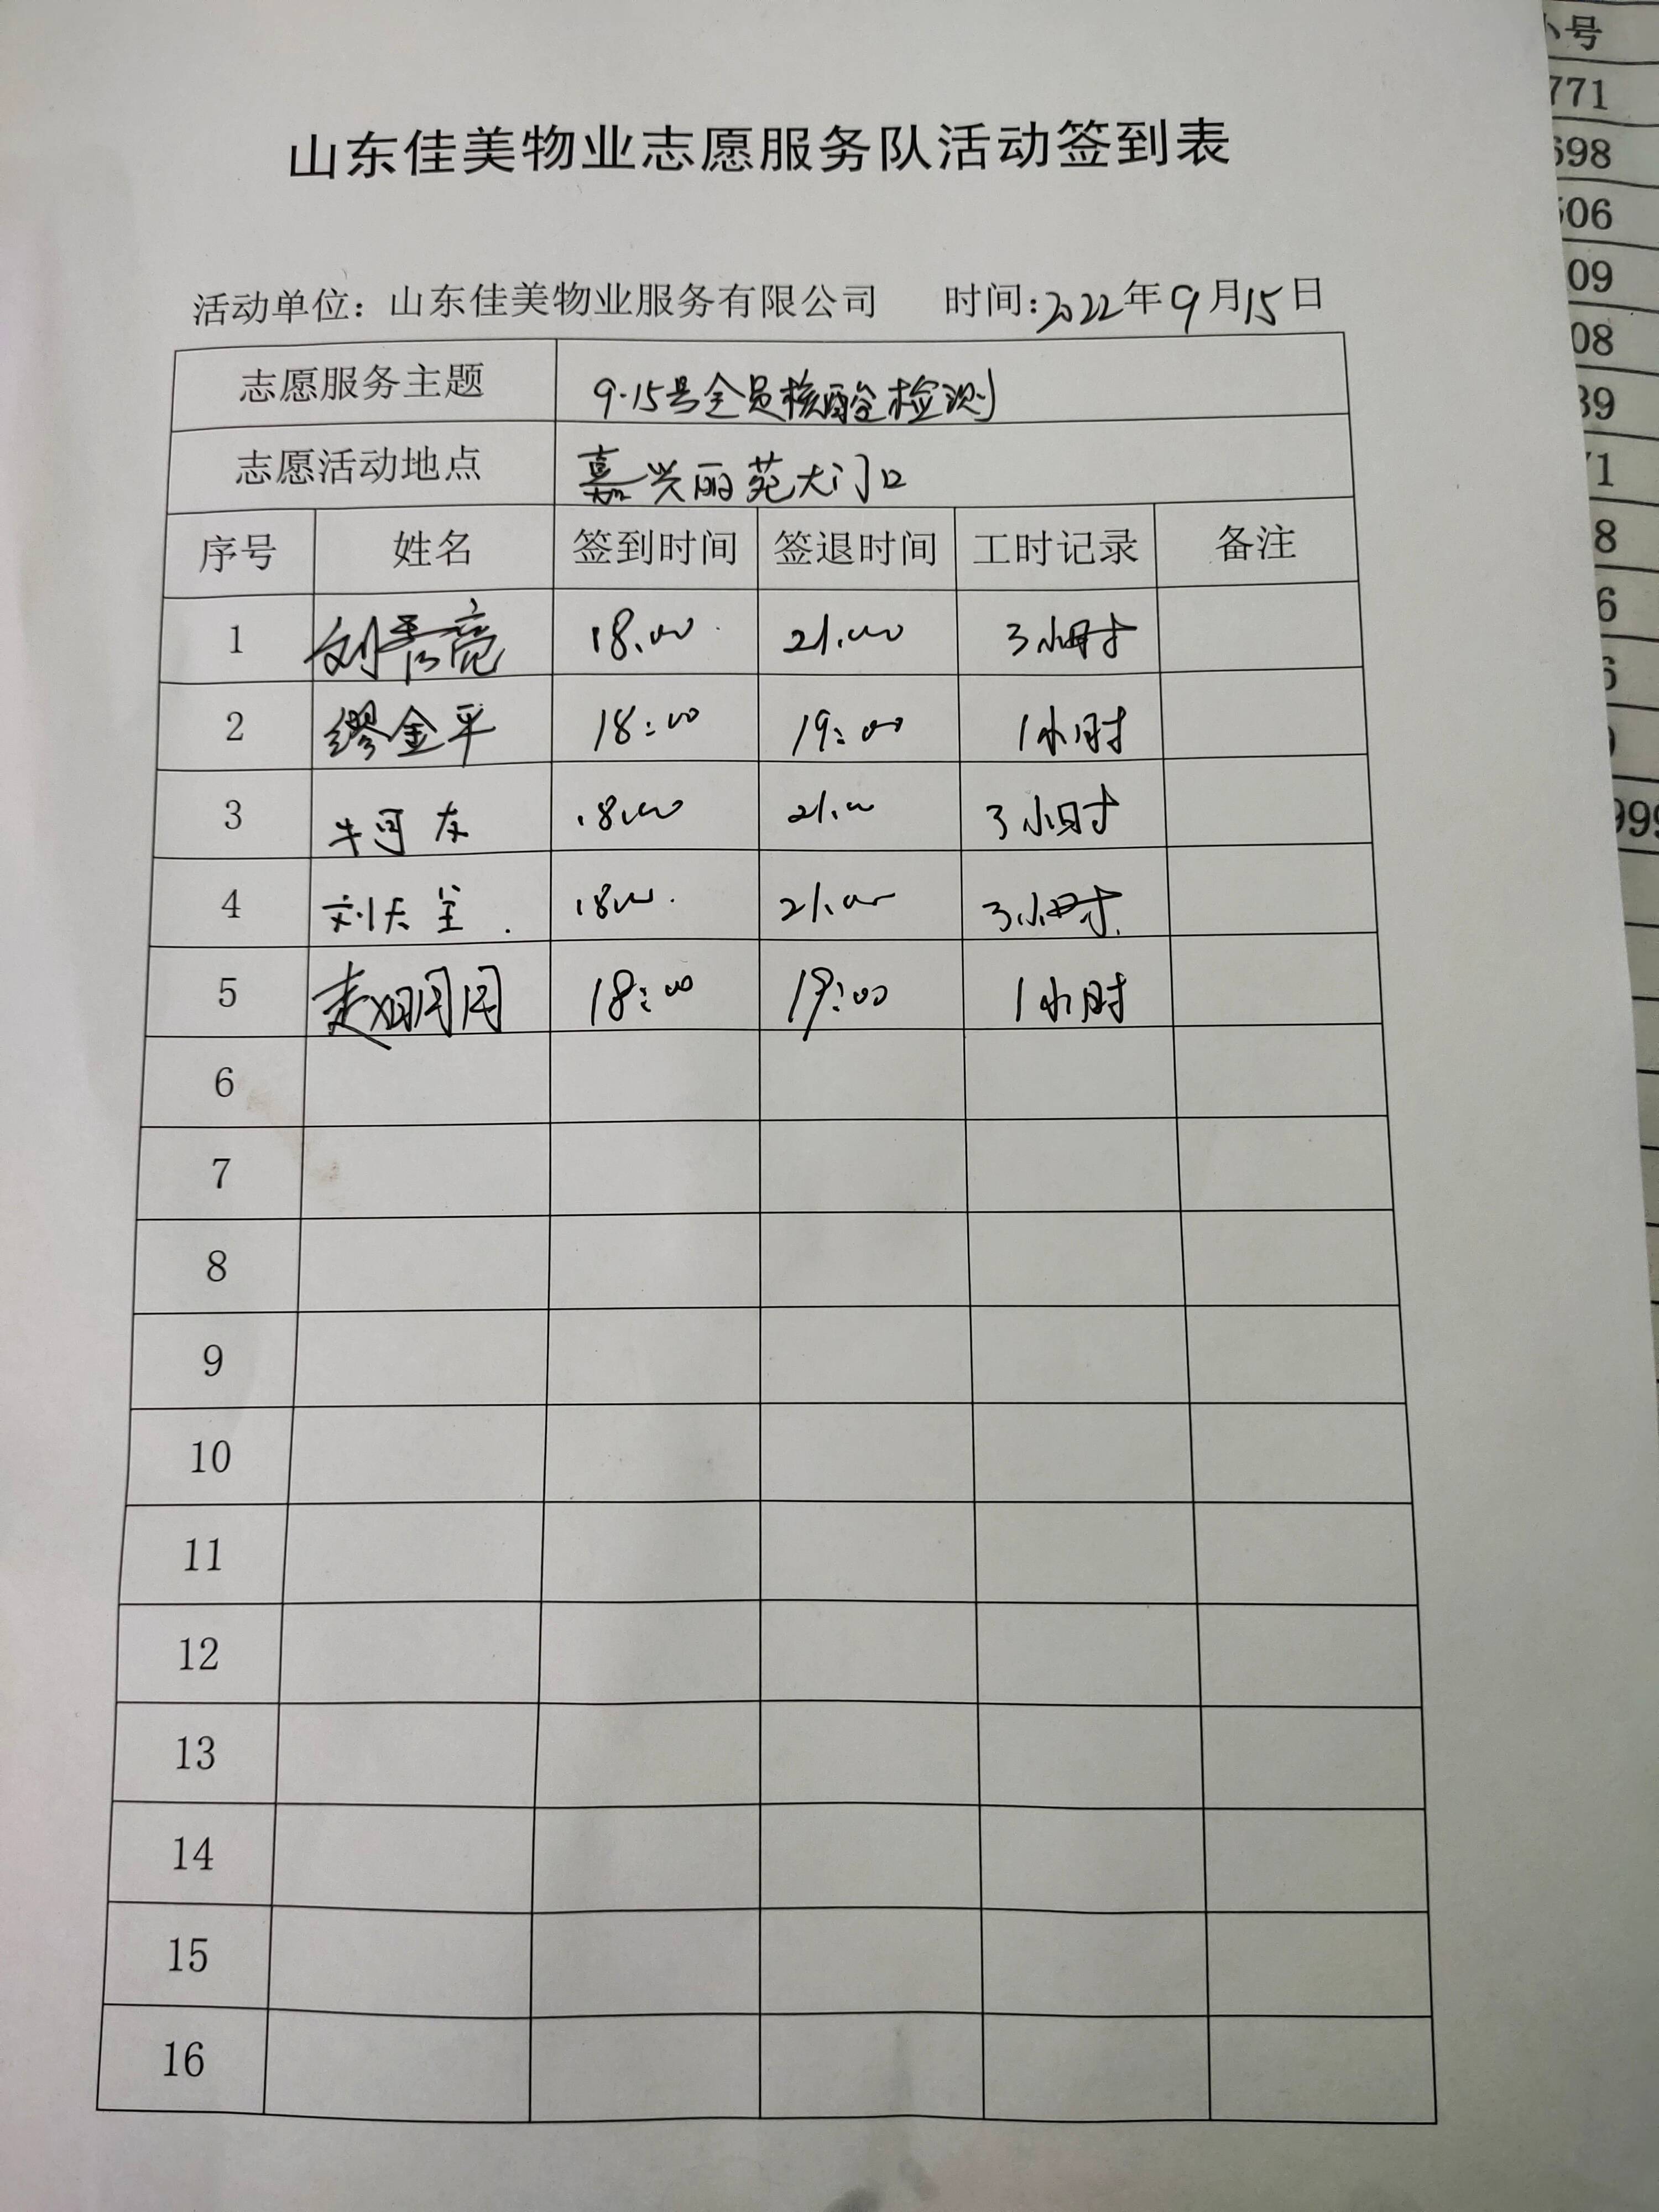 山东佳美物业志愿服务队活动签到表
活动单位：山东佳美物业服务有限公司 时间：2022年9月15日
志愿服务主题 9.15号全员核酸检测
志愿活动地点 嘉兴丽苑大门口
序号 姓名 签到时间 签退时间 工时记录 备注
1 18.00 21.00 3小时
2 缪金平 18:00 19:00 1小时
3 18.00 21.00 3小时
4 18.00 21.00 3小时
5 18:00 19:00 1小时
6
7
8
9
10
11
12
13
14
15
16
小号
771
698
506
09
08
39
71
8
6
6
999